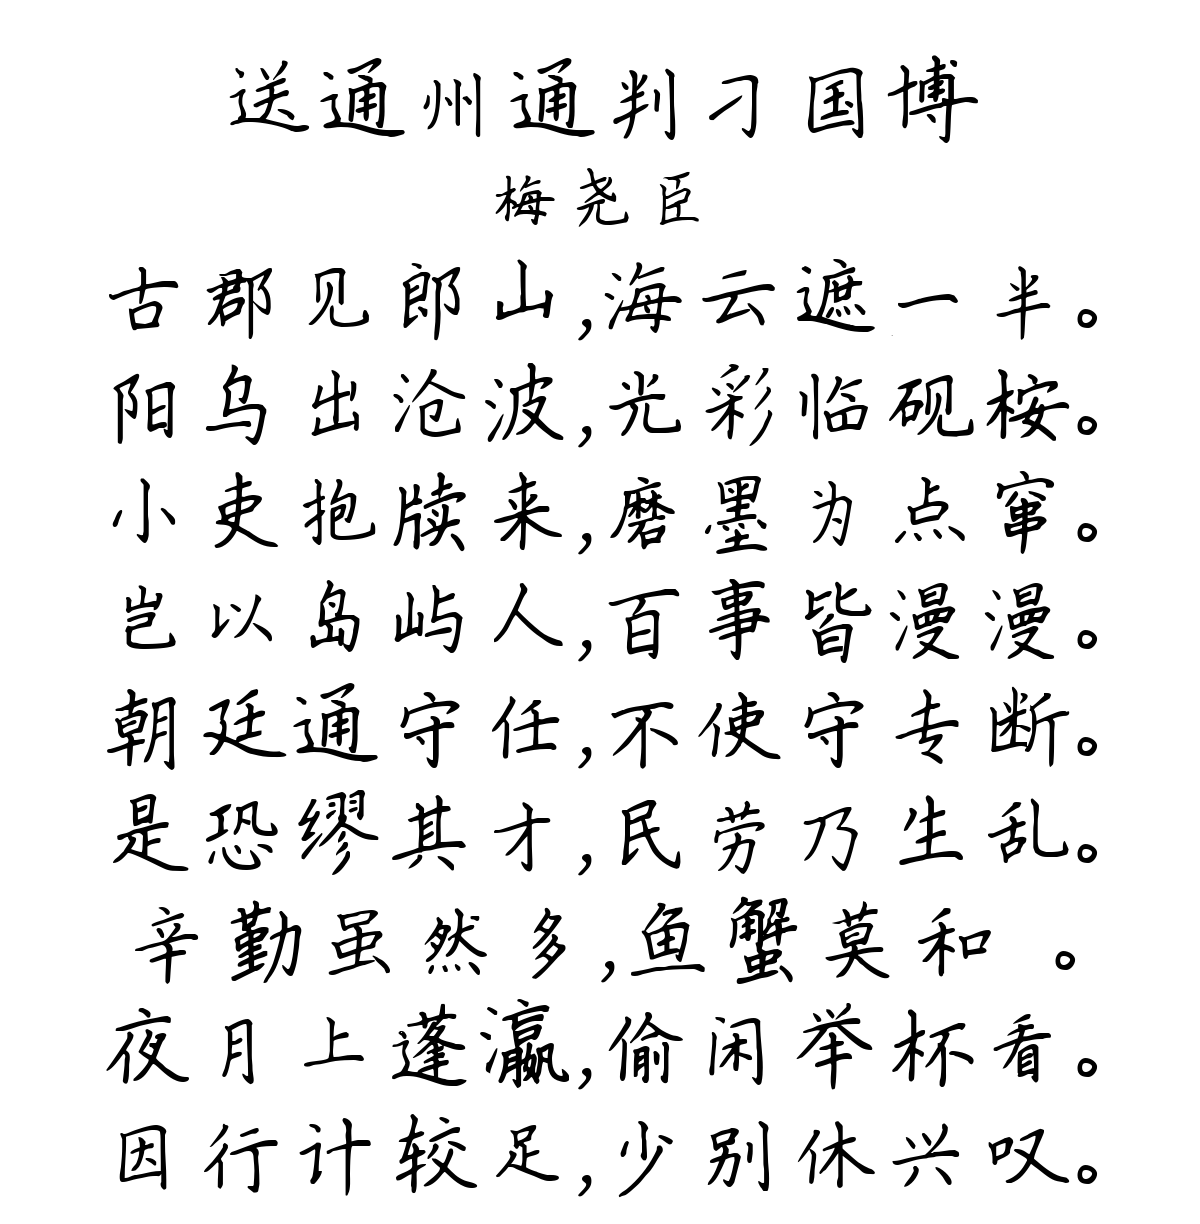 送通州通判刁国博
梅尧臣
古郡见郎山,海云遮一半。
阳乌出沧波,光彩临砚桉。
小吏抱牍来,磨墨为点窜。
岂以岛屿人,百事皆漫漫。
朝廷通守任,不使守专断。
是恐缪其才,民劳乃生乱。
辛勤虽然多,鱼蟹莫和 。
夜月上蓬瀛,偷闲举杯看。
因行计较足,少别休兴叹。